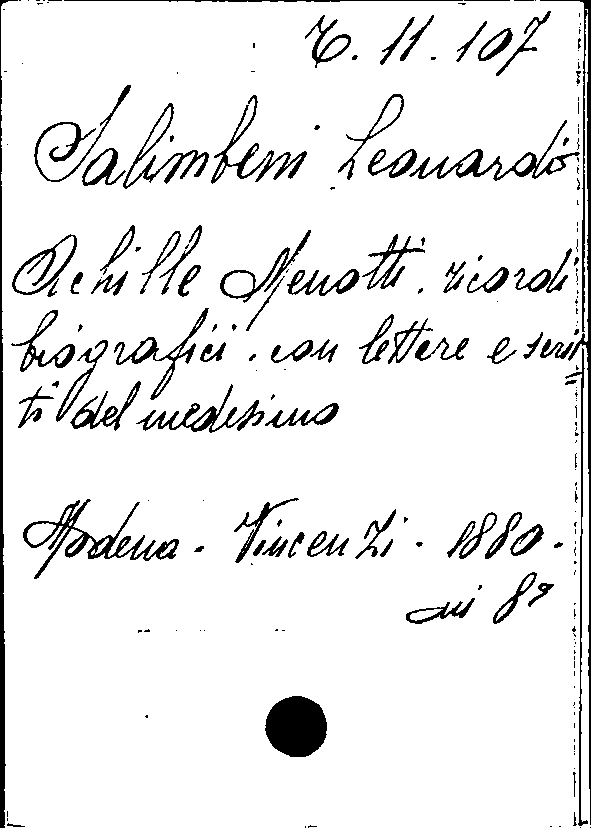 6. 11. 107
Salimbeni Leonardo
Achille Menotti. ricordi
biografici. con lettere e scrit=
ti del medesimo
Modena - Vincenzi - 1880 -
in 8º